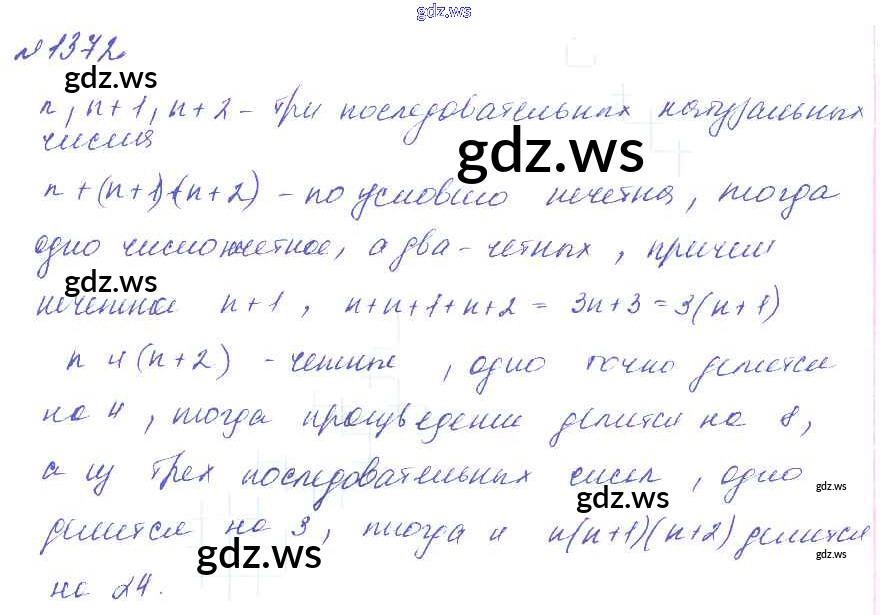 gdz.ws
№1372
gdz.ws
n, n+1, n+2 - три последовательных натуральных
числа
gdz.ws
n+(n+1)+(n+2) - по условию нечетна, тогда
одно число нечетное, а два - четных, причем
gdz.ws
нечетное n+1, n+n+1+n+2 = 3n+3 = 3(n+1)
n и (n+2) - четные, одно точно делится
на 4, тогда произведение делится на 8,
а из трех последовательных чисел, одно
gdz.ws
gdz.ws
делится на 3, тогда и n(n+1)(n+2) делится
gdz.ws
gdz.ws
на 24.